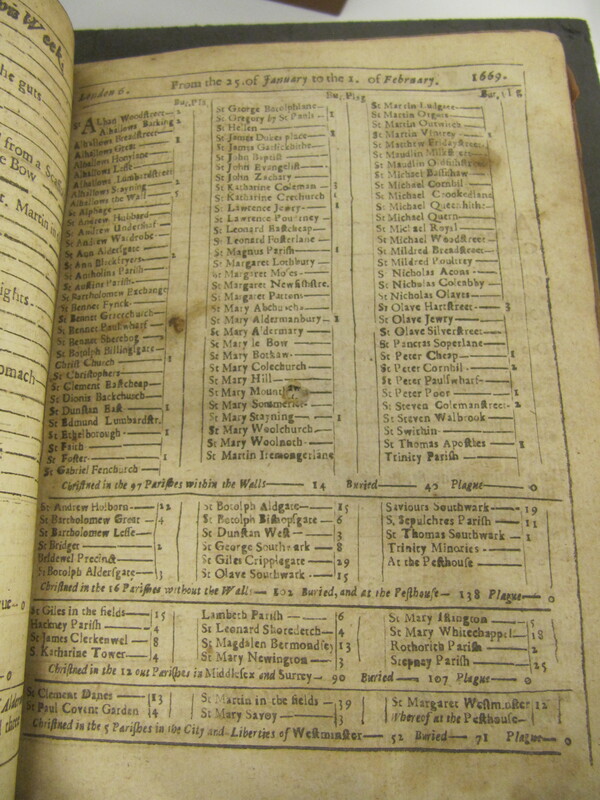 his Week,
the guts
d from a Scaf
e Bow
Martin in
ights.
omach
London 6. From the 25. of January to the 1. of February. 1669.
Bu. Pla
St Alban Woodstreet— 2
Alhallows Barking 2
Alhallows Breadstreet—
Alhallows Great— 1
Alhallows Honylane—
Alhallows Lesse—
Alhallows Lumbardstreet
Alhallows Stayning— 2
Alhallows the Wall— 5
St Alphage—
St Andrew Hubbard—
St Andrew Undershaf—
St Andrew Wardrobe—
St Ann Aldersgate—
St Ann Blackfryers— 2
St Antholins Parish—
St Austins Parish—
St Bartholomew Exchange
St Bennet Fynck—
St Bennet Gracechurch—
St Bennet Paulswharf—
St Bennet Sherehog—
St Botolph Billingsgate—
Christ Church— 1
St Christophers—
St Clement Eastcheap—
St Dionis Backchurch—
St Dunstan East— 1
St Edmund Lumbardstr.
St Ethelborough— 1
St Faith—
St Foster— 1
St Gabriel Fenchurch—
Bu. Plag
St George Botolphlane—
St Gregory by St Pauls— 1
St Hellen—
St James Dukes place— 1
St James Garlickhithe—
St John Baptist—
St John Evangelist—
St John Zachary—
St Katharine Coleman— 3
St Katharine Crechurch 1
St Lawrence Jewry— 1
St Lawrence Pountney—
St Leonard Eastcheap—
St Leonard Fosterlane—
St Magnus Parish— 1
St Margaret Lothbury—
St Margaret Moses—
St Margaret Newfishstre.
St Margaret Pattons—
St Mary Abchurch—
St Mary Aldermanbury— 2
St Mary Aldermary—
St Mary le Bow—
St Mary Bothaw—
St Mary Colechurch—
St Mary Hill—
St Mary Mount
St Mary Sommerset—
St Mary Stayning— 1
St Mary Woolchurch—
St Mary Woolnoth—
St Martin Iremongerlane
Bur. Plg
St Martin Ludgate—
St Martin Orgars—
St Martin Outwitch—
St Martin Vintrey— 1
St Matthew Fridaystreet
St Maudlin Milkstreet
St Maudlin Oldfishstre
St Michael Bassishaw—
St Michael Cornhil—
St Michael Crookedlane
St Michael Queenhithe
St Michael Quern—
St Michael Royal—
St Michael Woodstreet—
St Mildred Breadstreet—
St Mildred Poultrey—
S. Nicholas Acons—
St Nicholas Coleabby—
St Nicholas Olaves—
St Olave Hartstreet— 3
St Olave Jewry—
St Olave Silverstreet—
St Pancras Soperlane—
St Peter Cheap— 1
St Peter Cornhil— 2
St Peter Paulswharf—
St Peter Poor— 1
St Steven Colemanstreet— 2
St Steven Walbrook—
St Swithin—
St Thomas Apostles— 1
Trinity Parish—
Christned in the 97 Parishes within the Walls— 14 Buried— 42 Plague— 0
St Andrew Holborn— 22
St Bartholomew Great— 4
St Bartholomew Lesse—
St Bridget— 2
Bridewel Precinct—
St Botolph Aldersgate— 3
St Botolph Aldgate— 15
St Botolph Bishopsgate— 6
St Dunstan West— 3
St George Southwark— 8
St Giles Cripplegate— 29
St Olave Southwark— 15
Saviours Southwark— 19
S. Sepulchres Parish— 11
St Thomas Southwark— 1
Trinity Minories—
At the Pesthouse—
Christned in the 16 Parishes without the Walls— 102 Buried, and at the Pesthouse— 138 Plague— 0
St Giles in the fields— 15
Hackney Parish— 4
St James Clerkenwel— 8
S. Katharine Tower— 4
Lambeth Parish— 6
St Leonard Shoreditch— 4
St Magdalen Bermondsey 13
St Mary Newington— 3
St Mary Islington— 5
St Mary Whitechappel— 18
Rothorith Parish— 2
Stepney Parish— 25
Christned in the 12 out Parishes in Middlesex and Surrey— 90 Buried— 107 Plague— 0
St Clement Danes— 23
St Paul Covent Garden 4
St Martin in the fields— 19
St Mary Savoy— 3
St Margaret Westminster 22
Whereof at the Pesthouse—
Christned in the 5 Parishes in the City and Liberties of Westminster— 52 Buried— 71 Plague— 0